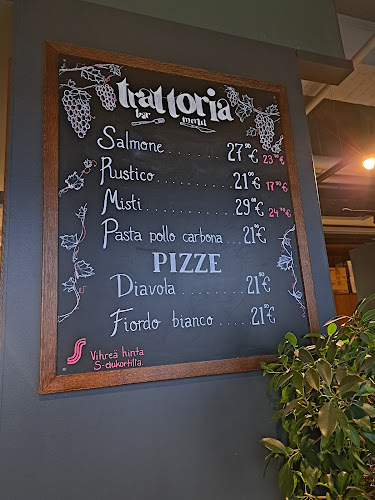 trattoria
bar menu
Salmone......... 27⁹⁰€ 23⁹⁰€
Rustico......... 21⁹⁰€ 17⁹⁰€
Misti........... 29⁹⁰€ 24⁹⁰€
Pasta pollo carbona... 21€
PIZZE
Diavola......... 21⁹⁰€
Fiordo bianco..... 21⁹⁰€
Vihreä hinta
S-etukortilla.